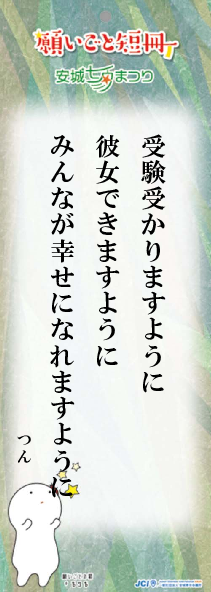 願いごと短冊
安城七夕まつり
受験受かりますように
彼女できますように
みんなが幸せになれますように
つん
JCI